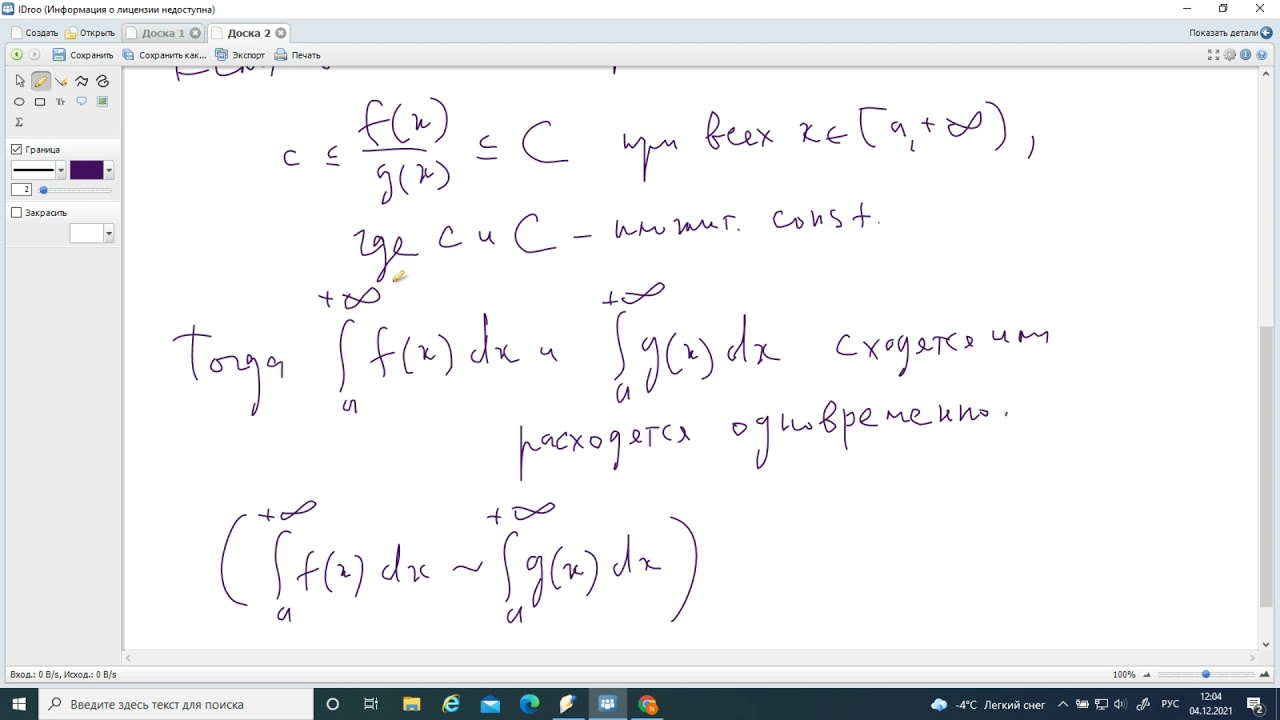 IDroo (Информация о лицензии недоступна)
Создать Открыть Доска 1 Доска 2 Показать детали
Сохранить Сохранить как... Экспорт Печать
Tr
Σ
Граница
2
Закрасить
c ≤ f(x)/g(x) ≤ C при всех x ∈ [a, +∞),
где c и C – полжит. const.
Тогда ∫_a^{+∞} f(x) dx и ∫_a^{+∞} g(x) dx сходятся или
расходятся одновременно.
(∫_a^{+∞} f(x) dx ~ ∫_a^{+∞} g(x) dx)
Вход.: 0 B/s, Исход.: 0 B/s 100%
Введите здесь текст для поиска
-4°C Легкий снег РУС 12:04
04.12.2021 2